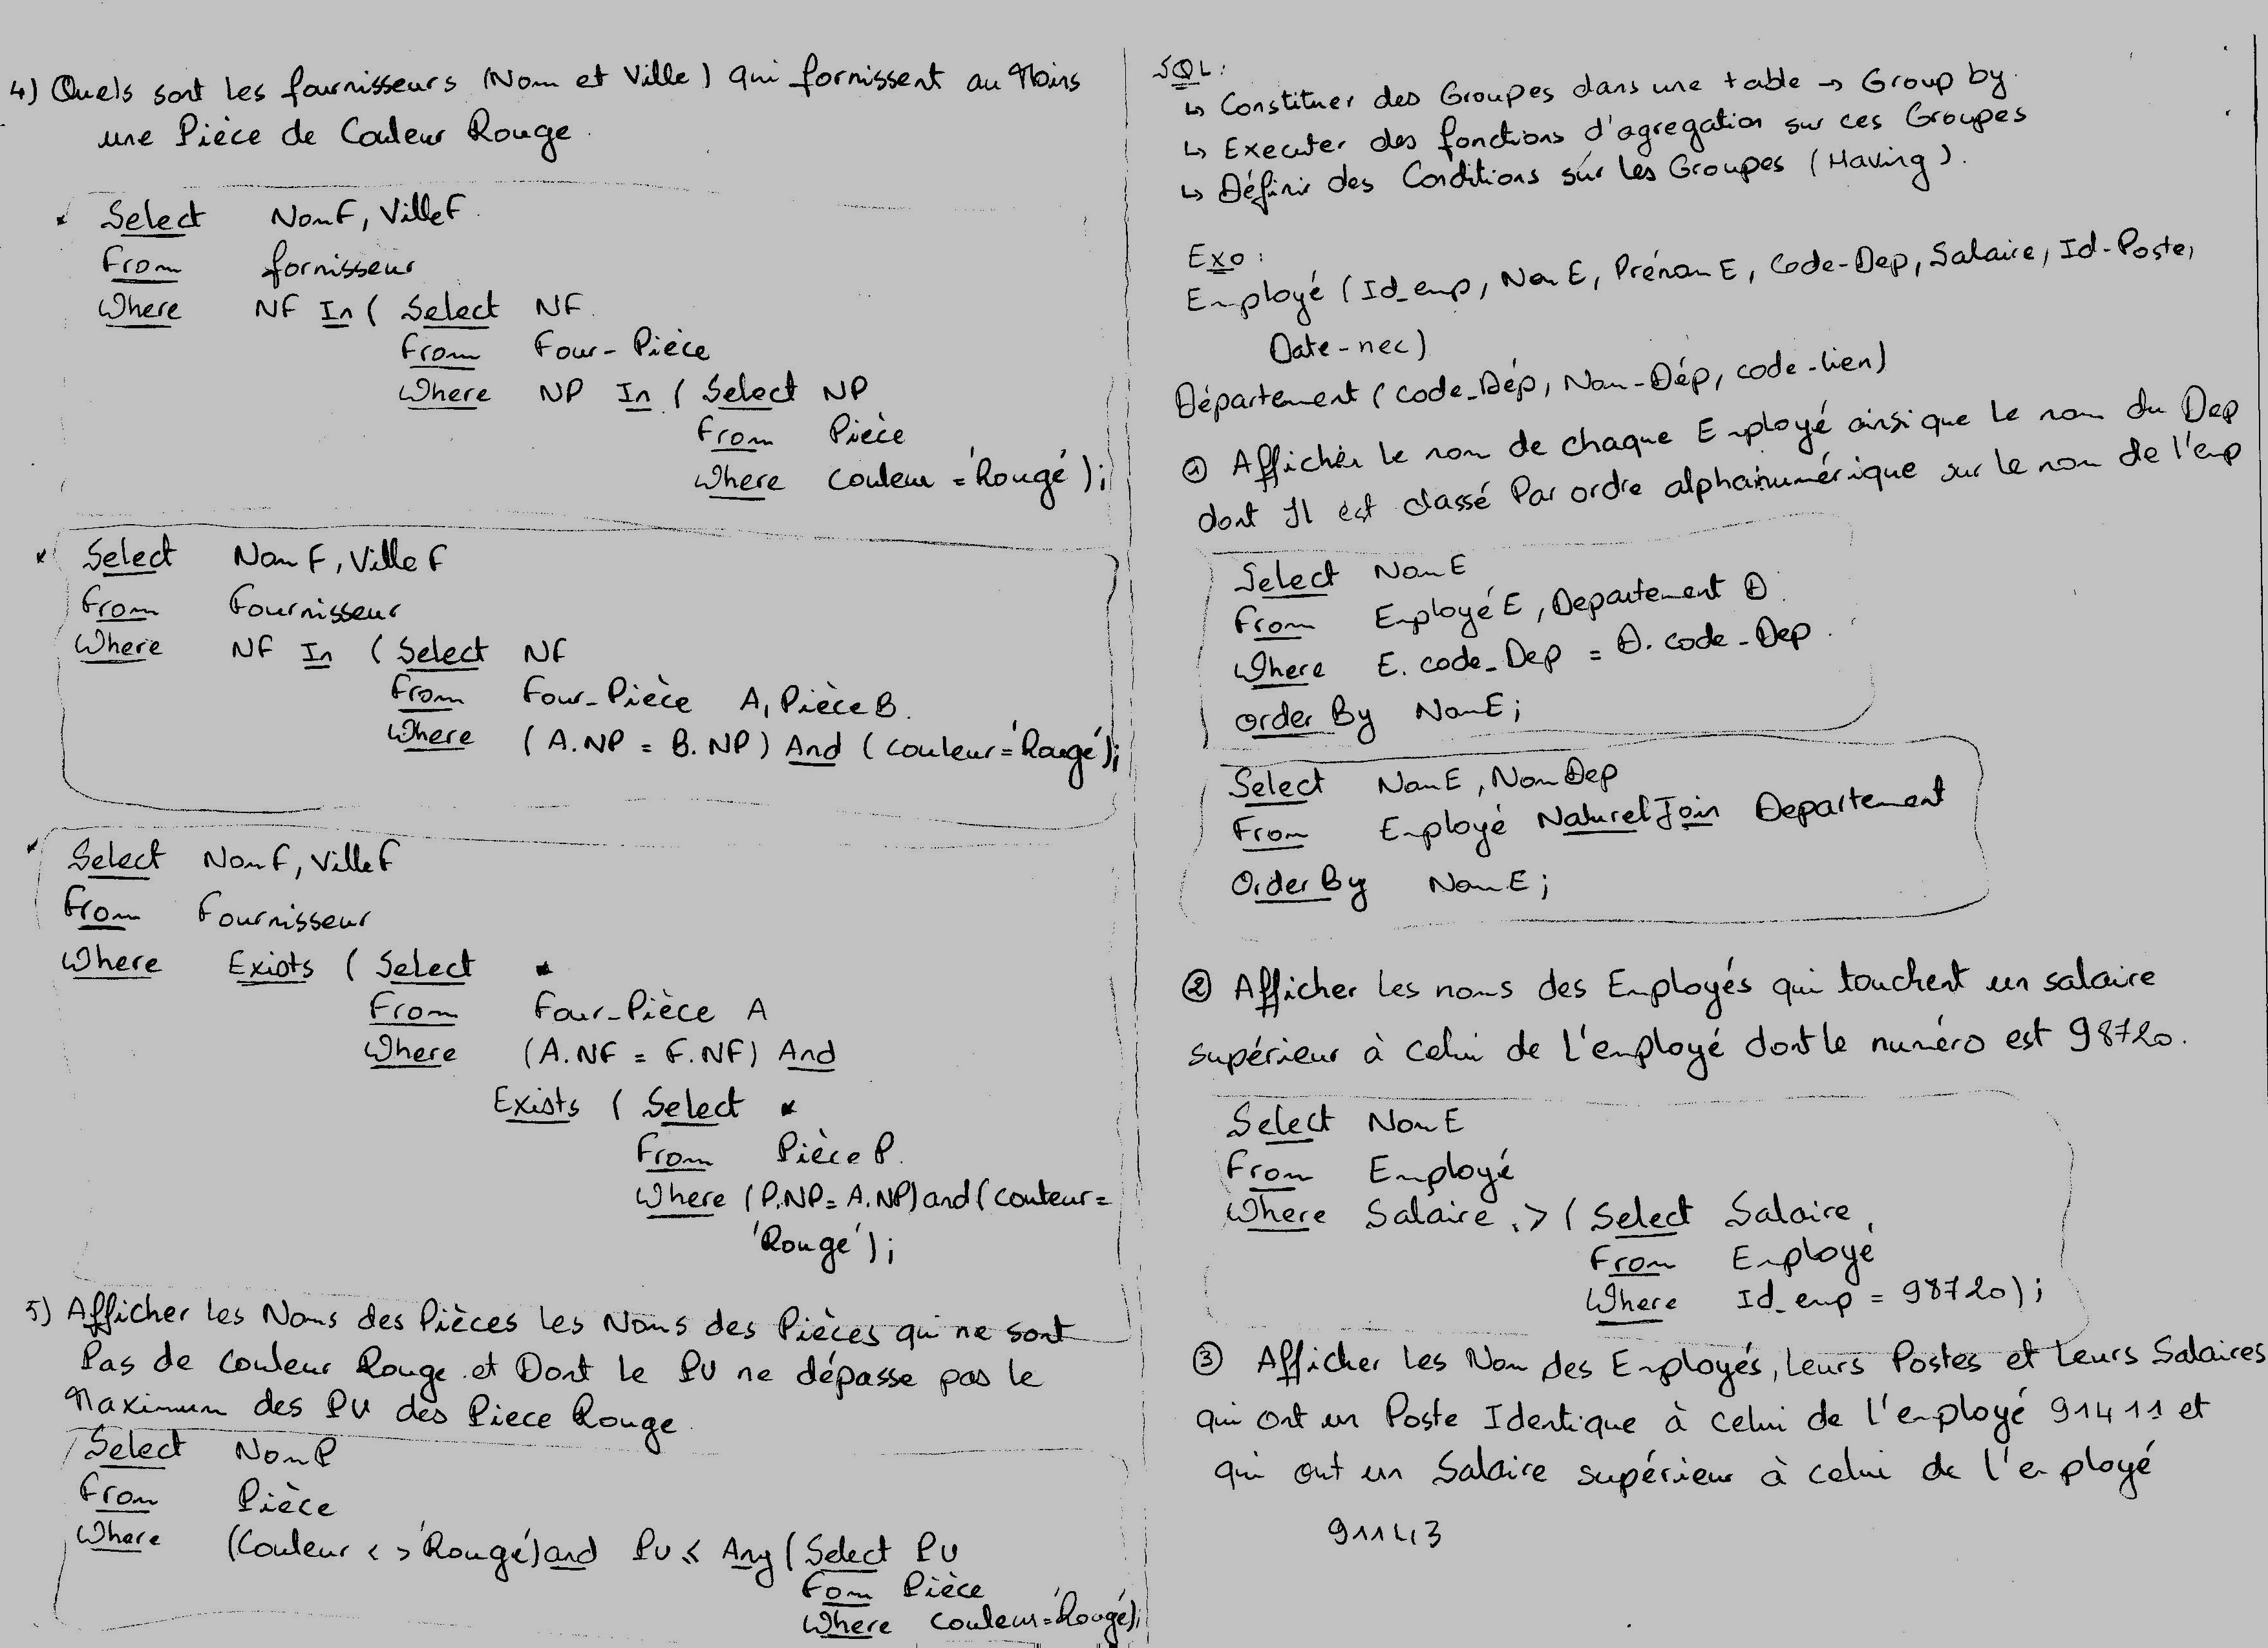 4) Quels sont les fournisseurs (Nom et Ville) qui fornissent au Moins
une Pièce de Couleur Rouge.
* Select NomF, VilleF
From fornisseur
Where NF In ( Select NF
From Four-Pièce
Where NP In ( Select NP
From Pièce
Where Couleur = 'Rouge' );
* Select NomF, VilleF
From Fournisseur
Where NF In (Select NF
From Four-Pièce A, Pièce B.
Where (A.NP = B.NP) And (couleur='Rouge');
* Select NomF, VilleF
From Fournisseur
Where Exists ( Select *
From Four-Pièce A
Where (A.NF = F.NF) And
Exists ( Select *
From Pièce P.
Where (P.NP= A.NP) and (couteur=
'Rouge');
5) Afficher les Noms des Pièces les Noms des Pièces qui ne sont
Pas de couleur Rouge et Dont le PU ne dépasse pas le
Maximum des PU des Piece Rouge
Select NomP
From Pièce
Where (Couleur < > 'Rouge') and PU ≤ Any (Select PU
Fom Pièce
Where couleur='Rouge');
SQL:
↳ Constituer des Groupes dans une table → Group by.
↳ Executer des fonctions d'agregation sur ces Groupes
↳ Définir des Conditions sur les Groupes (Having).
Exo:
Employé (Id_emp, NomE, PrénomE, Code-Dep, Salaire, Id-Poste,
Date-nec)
Département (code_Dép, Nom-Dép, code-lien)
① Afficher le nom de chaque Employé ainsi que le nom du Dep
dont Il est classé Par ordre alphanumérique sur le nom de l'emp
Select NomE
From Employé E, Departement D.
Where E.code_Dep = D.code-Dep.
order By NomE;
Select NomE, NomDep
From Employé Naturel Join Departement
Order By NomE;
② Afficher les noms des Employés qui touchent un salaire
supérieur à celui de l'employé dont le numéro est 98720.
Select NomE
From Employé
Where Salaire > ( Select Salaire
From Employé
Where Id_emp = 98720);
③ Afficher les Nom des Employés, leurs Postes et leurs Salaires
qui ont un Poste Identique à celui de l'employé 91411 et
qui ont un Salaire supérieur à celui de l'employé
91143